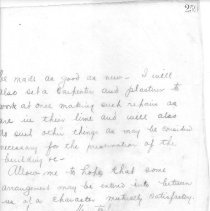 250
be made as good as new - I will
also set a Carpenter and plasterer to
work at once making such repairs as
are in their line and will also
do such other things as may be considered
necessary for the preservation of the
building &c -
Allow me to hope that some
arrangement may be entered into between
us of a character mutually satisfactory.